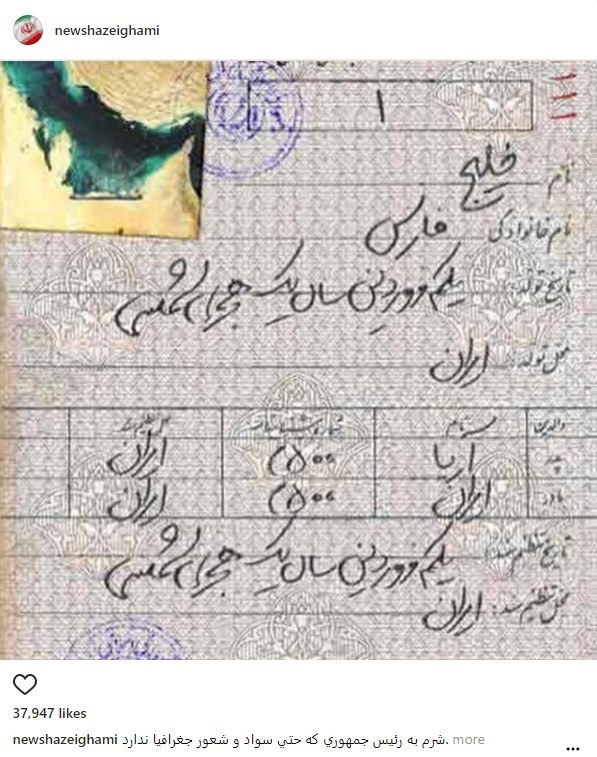 newshazeighami
۱
نام خلیج
نام خانوادگی فارس
تاریخ تولد: یکم فروردین سال یک هجری شمسی
محل تولد: ایران
والدین نام شماره شناسنامه محل تنظیم
پدر آریا ۲۵۰۰ ایران
مادر ایران ۲۵۰۰ ایران
تاریخ تنظیم سند: یکم فروردین سال یک هجری شمسی
محل تنظیم سند: ایران
37,947 likes
newshazeighami شرم به رئيس جمهوري كه حتي سواد و شعور جغرافيا ندارد. more